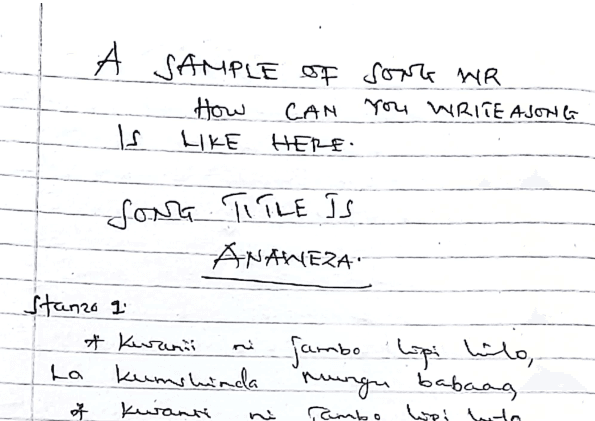 A SAMPLE OF SONG WR
HOW CAN YOU WRITE A SONG
IS LIKE HERE.
SONG TITLE IS
ANAWEZA.
Stanza 1.
* Kwanii ni jambo lipi hilo,
La kumshinda mungu babaaa,
* Kwanii ni jambo lipi hilo